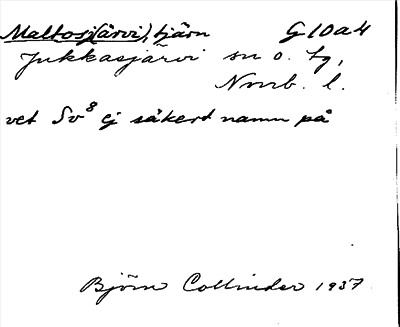 Maltosj(ärvi), tjärn G 10 a 4
Jukkasjärvi sn o. tg,
Nmb. l.
vet Sv⁸ ej säkert namn på
Björn Collinder 1937